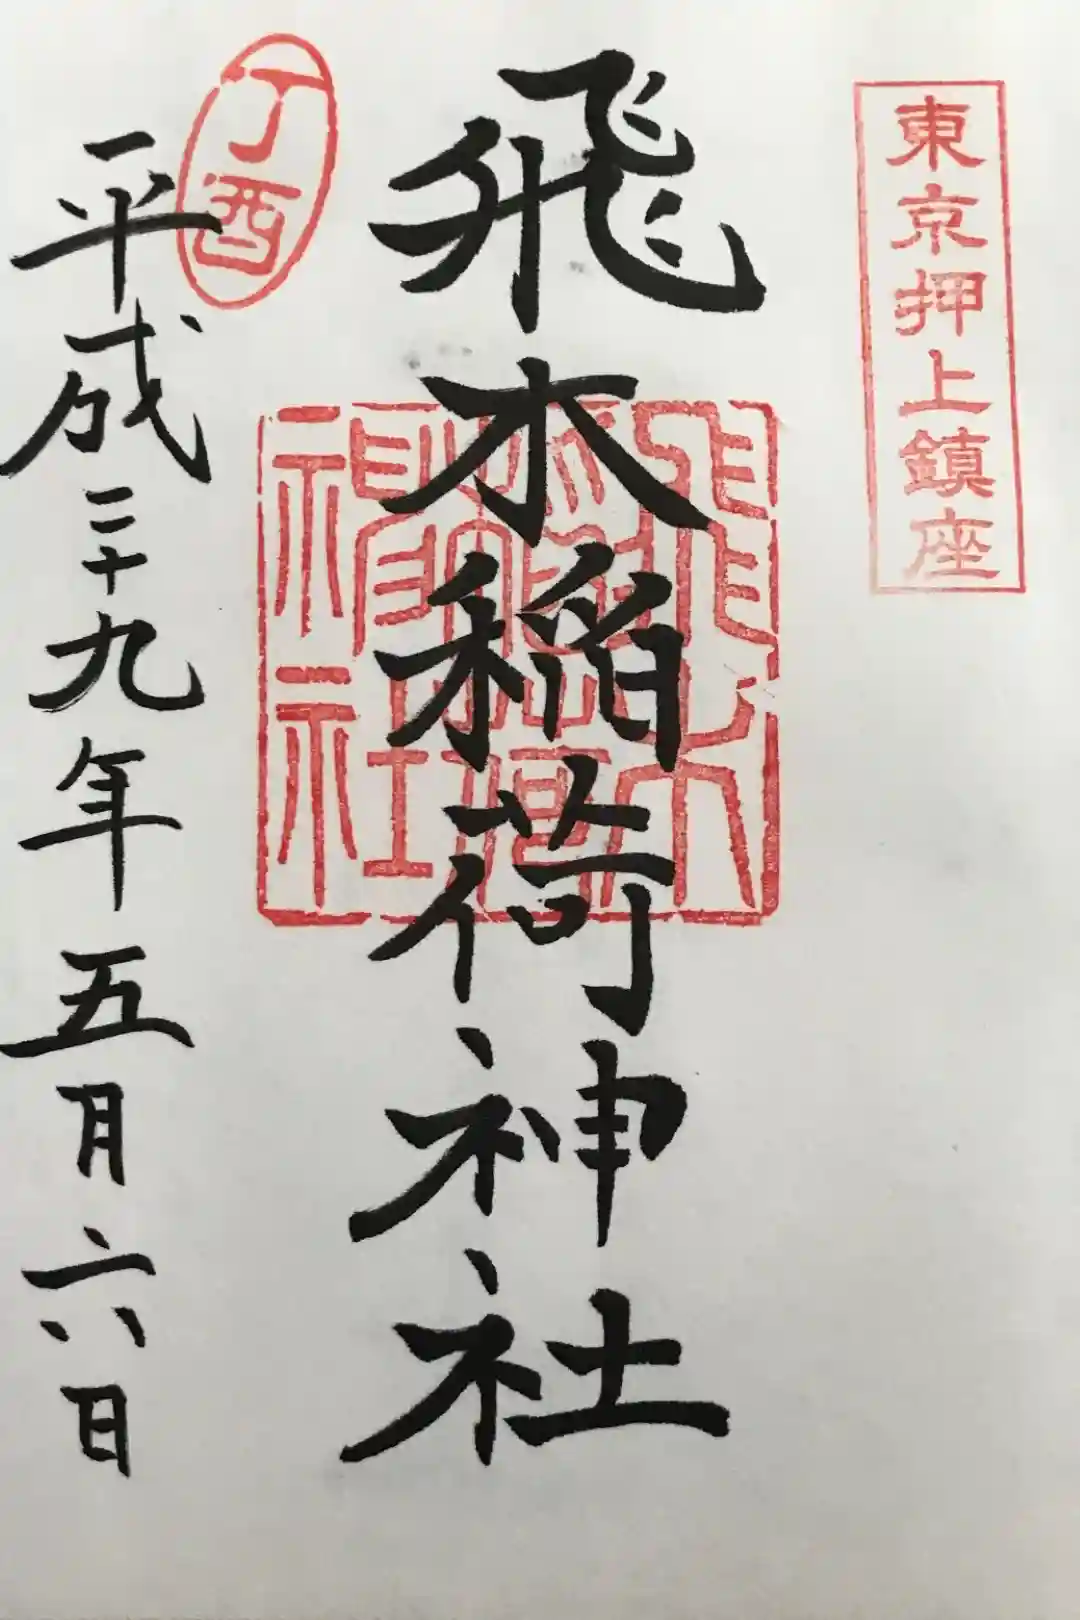 東京押上鎮座
飛木稲荷神社
飛木
稲荷
神社
丁酉
平成二十九年五月六日